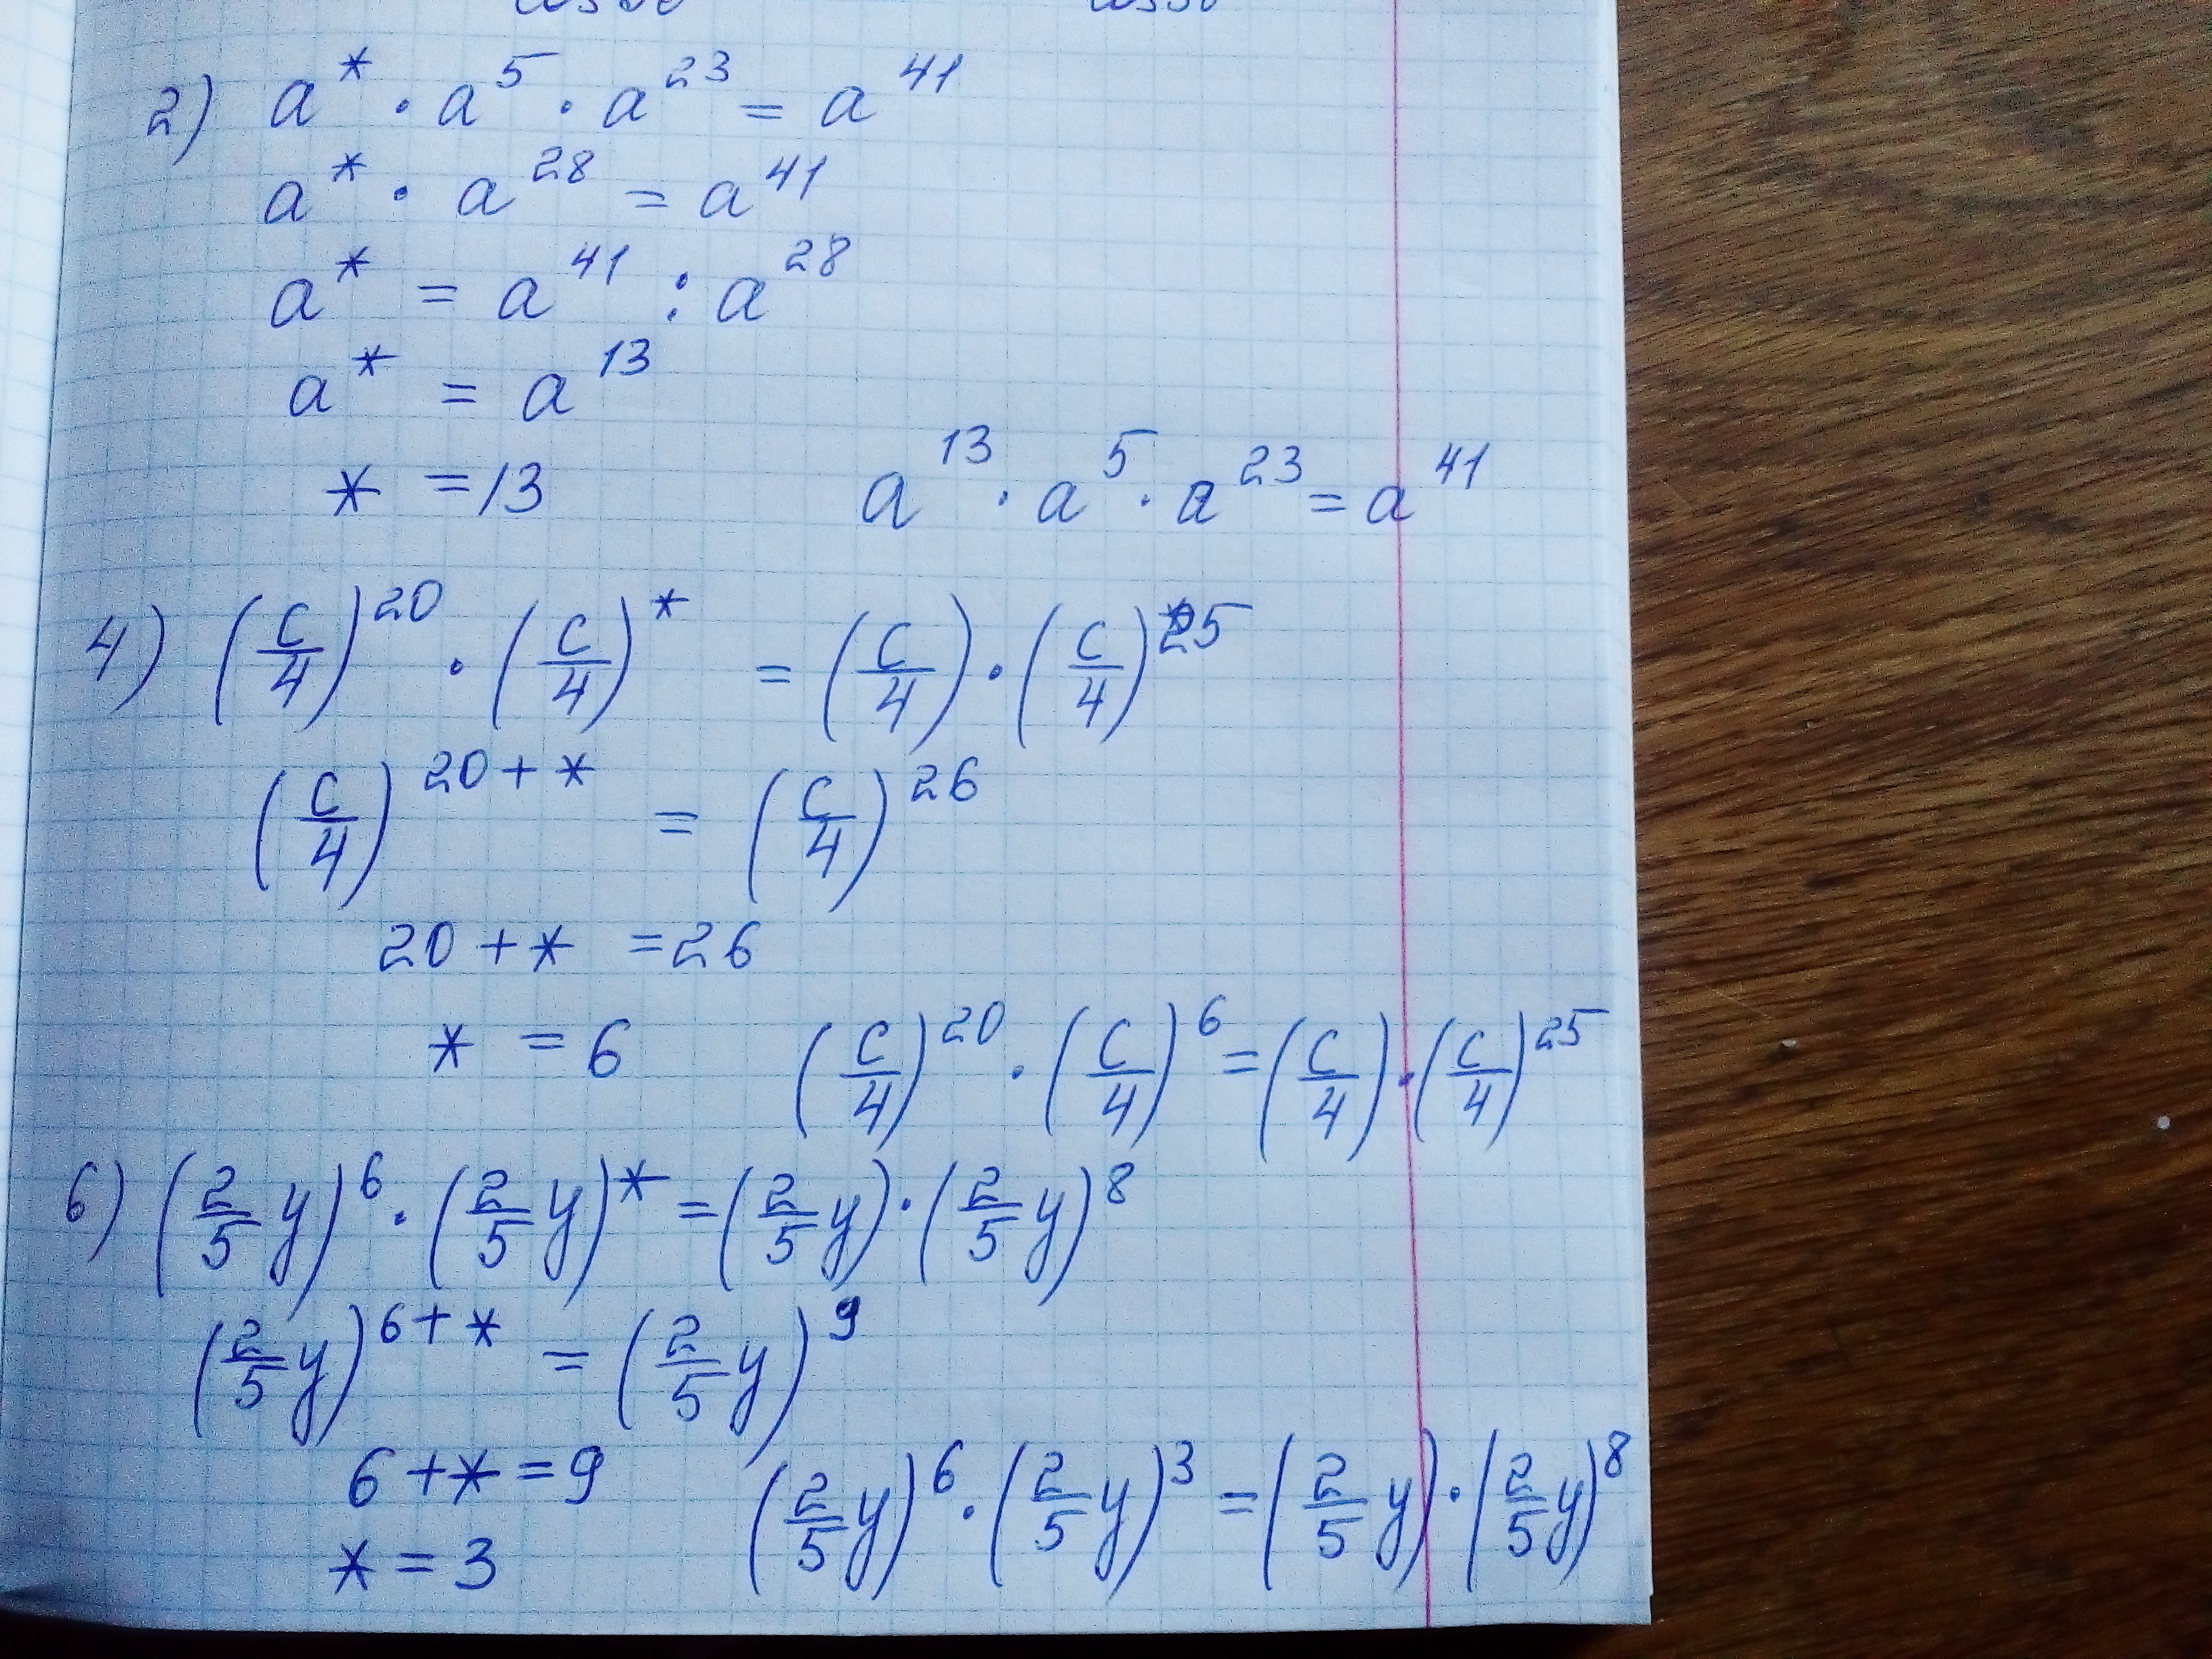 2) a^* · a^5 · a^23 = a^41
a^* · a^28 = a^41
a^* = a^41 : a^28
a^* = a^13
* = 13    a^13 · a^5 · a^23 = a^41
4) (c/4)^20 · (c/4)^* = (c/4) · (c/4)^25
(c/4)^(20+*) = (c/4)^26
20 + * = 26
* = 6    (c/4)^20 · (c/4)^6 = (c/4) · (c/4)^25
6) (2/5 y)^6 · (2/5 y)^* = (2/5 y) · (2/5 y)^8
(2/5 y)^(6+*) = (2/5 y)^9
6 + * = 9    (2/5 y)^6 · (2/5 y)^3 = (2/5 y) · (2/5 y)^8
* = 3